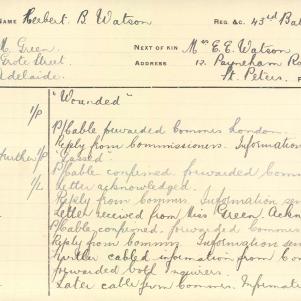 NAME Herbert B. Watson REG &C. 43rd Bat
Green. NEXT OF KIN Mrs E. E. Watson
Grote Street. ADDRESS 12. Payneham Ro
Adelaide. St. Peters.
"Wounded"
1/P P/Cable forwarded Commrs London.
Reply from Commissioners. Information
"Gassed"
further 1/P P/Cable confirmed. forwarded Comm
1/L Letter acknowledged.
Reply from Commrs. Information sen
Letter received from Miss Green. Ackn
P/Cable confirmed. forwarded Commrs
Reply from Commrs Information sen
Further cabled information from Com
forwarded both inquirers.
Later cable from Commrs. Informati